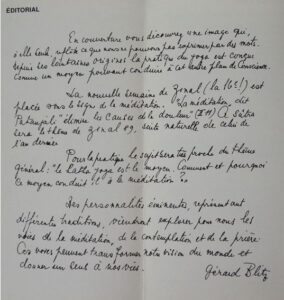 ÉDITORIAL
En couverture vous découvrez une image qui,
à elle seule, reflète ce que nous ne pouvons pas exprimer par des mots.
Depuis ses lointaines origines la pratique du yoga est conçue
comme un moyen pouvant conduire à cet autre plan de Conscience.
La nouvelle semaine de Zinal (la 16e!) est
placée sous le signe de la méditation. "La méditation, dit
Patanjali "élimine les causes de la douleur" (II-11) Ce sûtra
sera le thème de Zinal 89, suite naturelle de celui de
l'an dernier.
Pour la pratique le sujet sera très proche du thème
général: "le hatha yoga est le moyen. Comment et pourquoi
ce moyen conduit-il à la méditation".
Des personnalités éminentes, représentant
différentes traditions, viendront explorer pour nous les
voies de la méditation, de la contemplation et de la prière
Ces voies peuvent transformer notre vision du monde et
donner un sens à nos vies.
Gérard Blitz